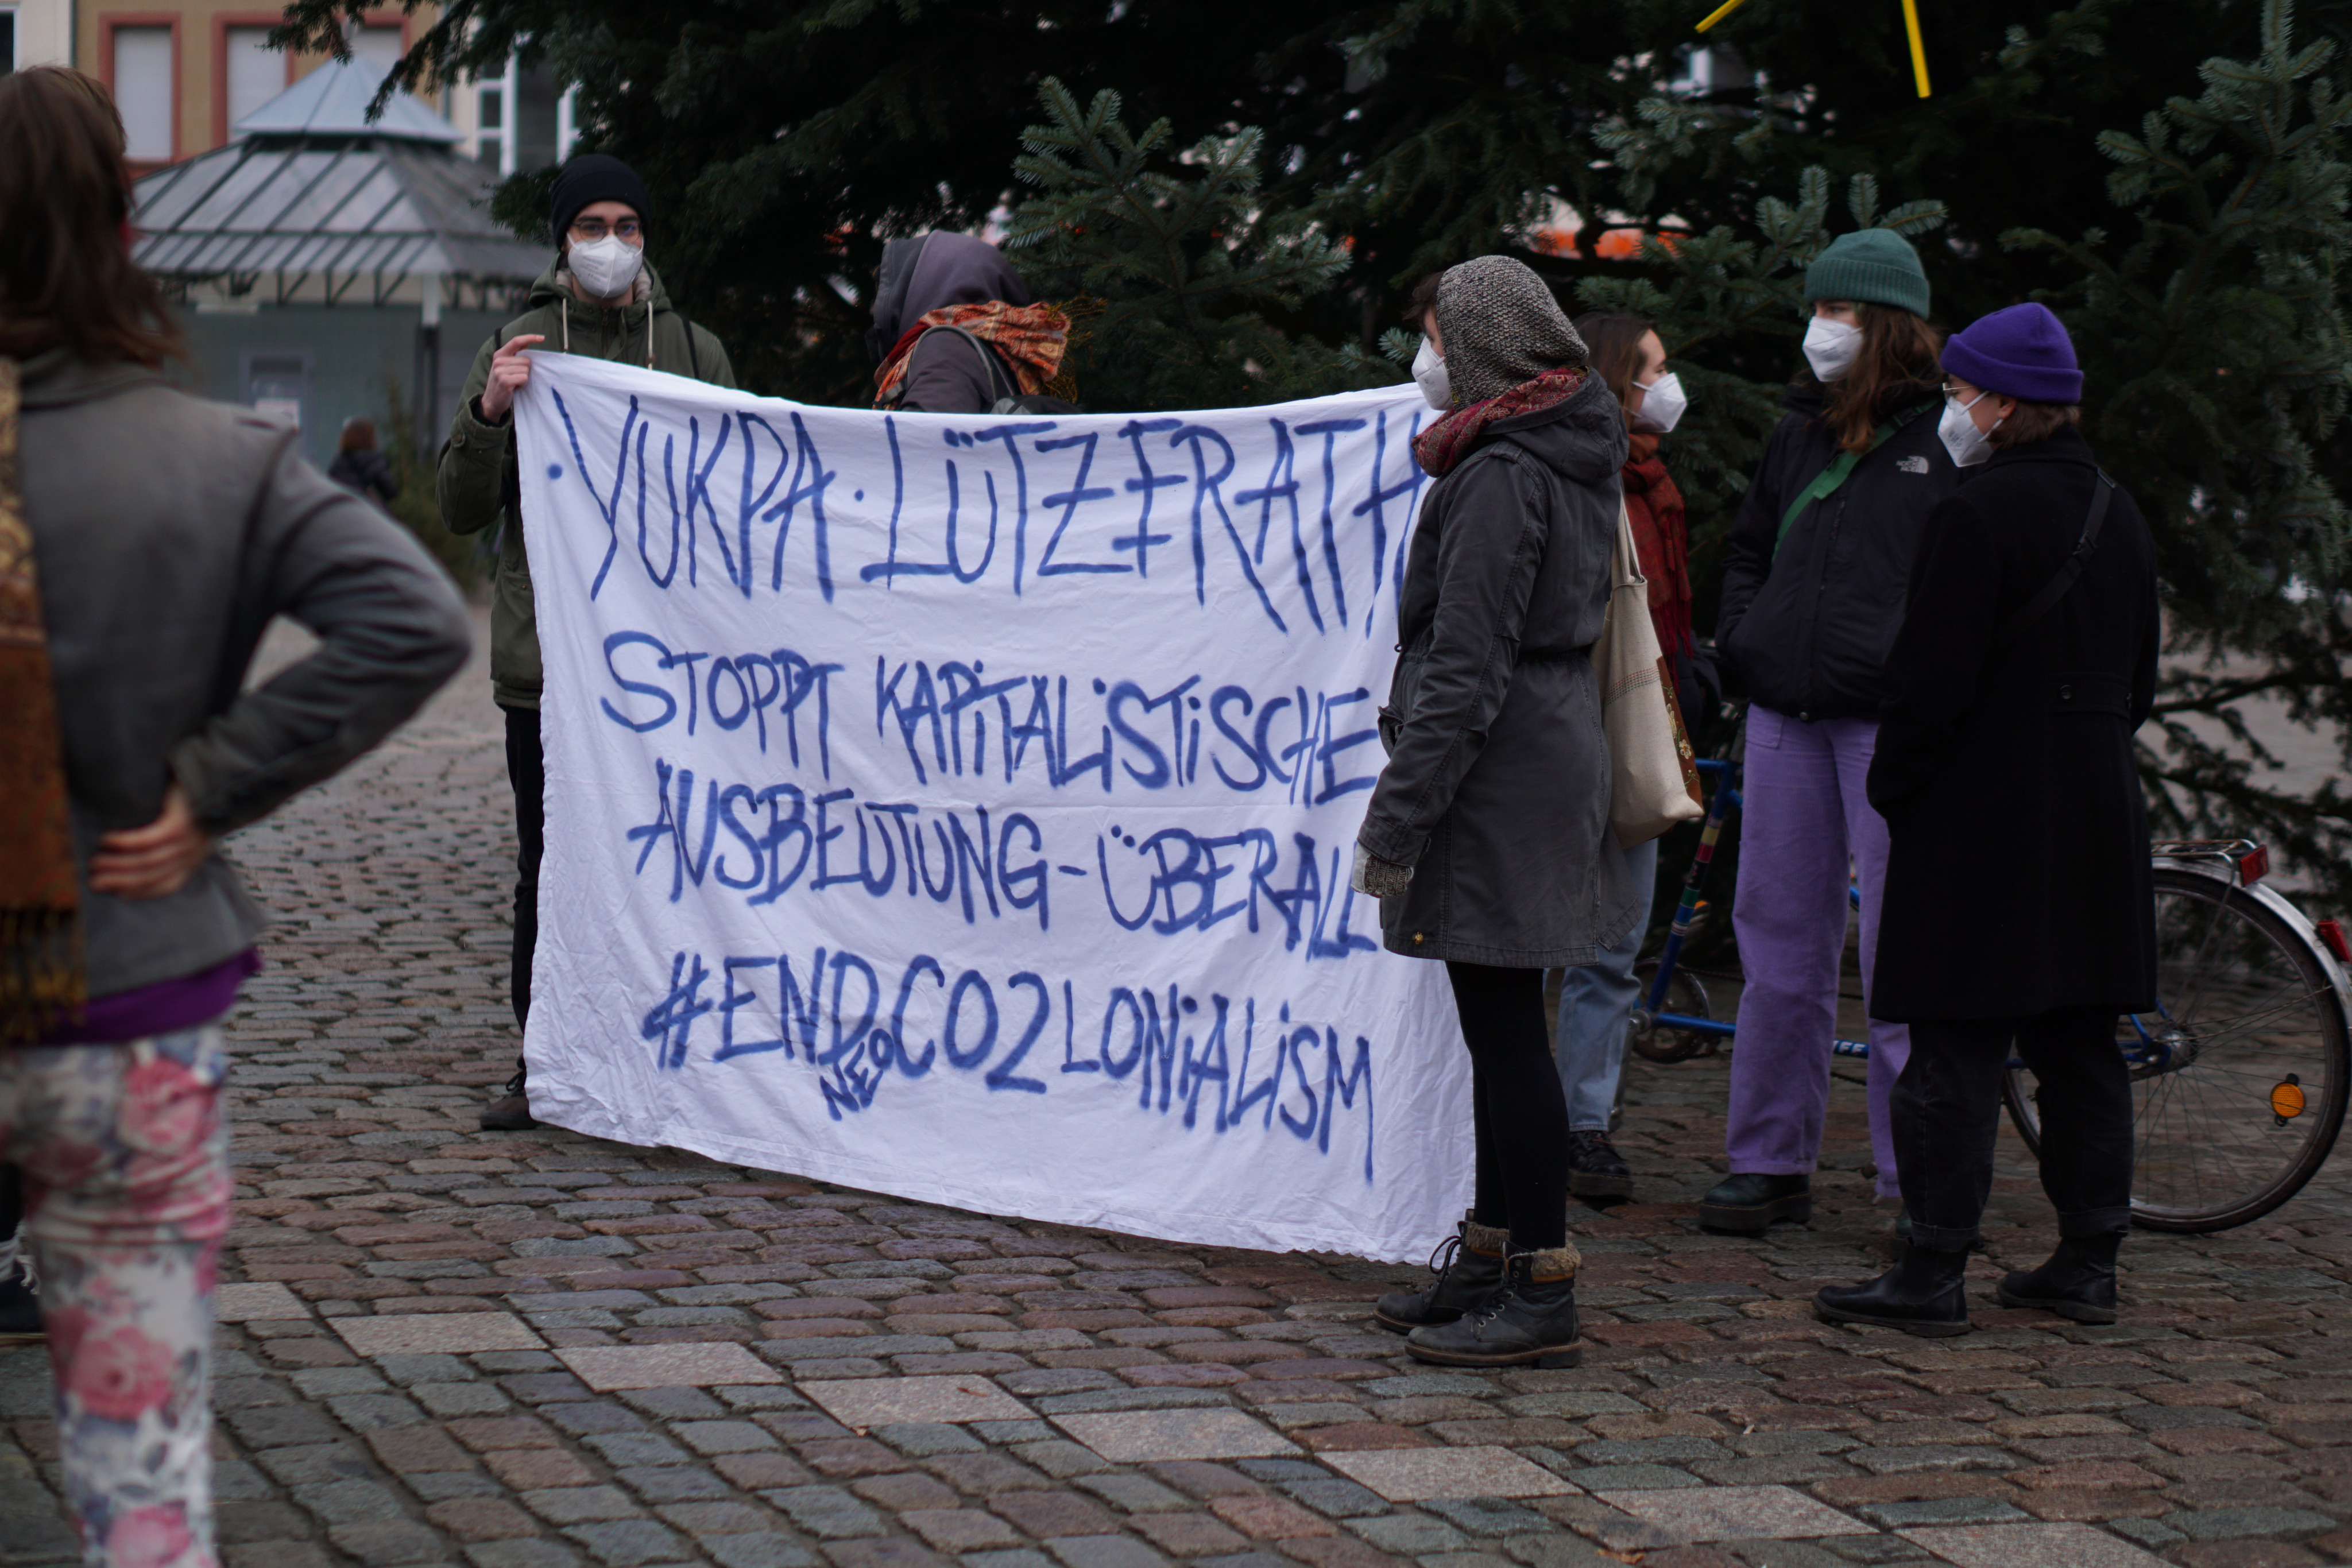 ·YUKPA·LÜTZERATH
STOPPT KAPiTALiSTiSCHE
AUSBEUTUNG-ÜBERALL
#END NEO CO2LONiALiSM
THE NORTH FACE